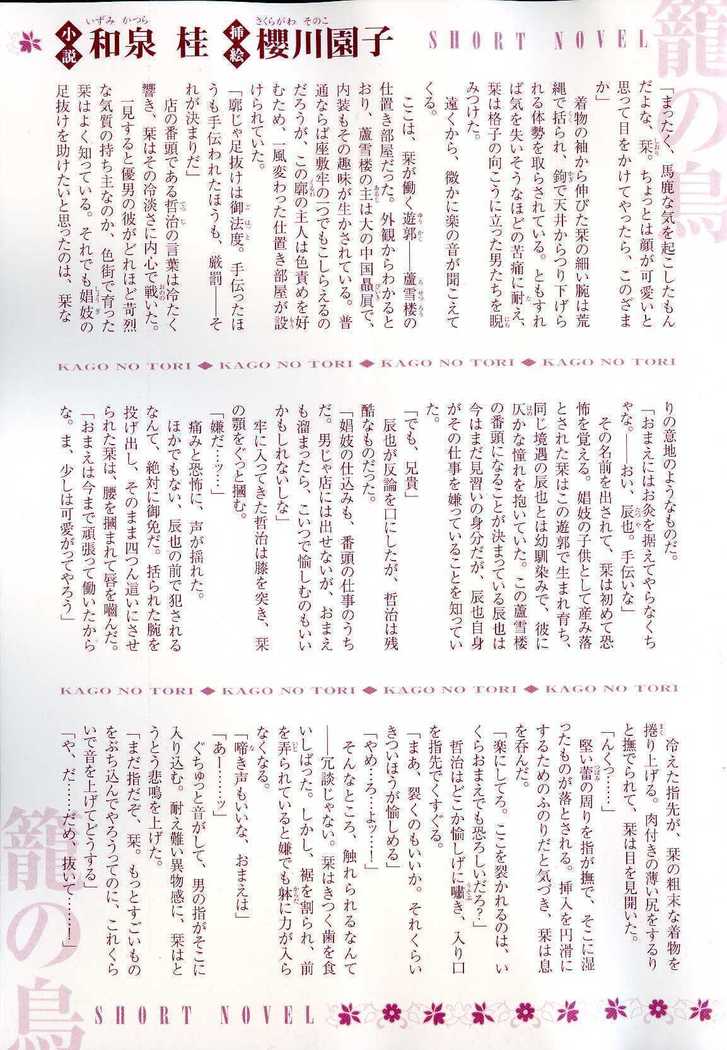 籠の鳥
SHORT NOVEL
挿絵 櫻川園子
さくらがわ そのこ
小説 和泉 桂
いずみ かつら
「まったく、馬鹿な気を起こしたもん
だよな、栞。ちょっとは顔が可愛いと
思って目をかけてやったら、このざま
か」
着物の袖から伸びた栞の細い腕は荒
縄で括られ、鉤で天井からつり下げら
れる体勢を取らされている。ともすれ
ば気を失いそうなほどの苦痛に耐え、
栞は格子の向こうに立った男たちを睨
みつけた。
遠くから、微かに楽の音が聞こえて
くる。
ここは、栞が働く遊郭――蘆雪楼の
仕置き部屋だった。外観からわかると
おり、蘆雪楼の主は大の中国贔屓で、
内装もその趣味が生かされている。普
通ならば座敷牢の一つでもこしらえるの
だろうが、この廓の主人は色責めを好
むため、一風変わった仕置き部屋が設
けられていた。
「廓じゃ足抜けは御法度。手伝ったほ
うも手伝われたほうも、厳罰――そ
れが決まりだ」
店の番頭である哲治の言葉は冷たく
響き、栞はその冷淡さに内心で戦いた。
一見すると優男の彼がどれほど苛烈
な気質の持ち主なのか、色街で育った
栞はよく知っている。それでも娼妓の
足抜けを助けたいと思ったのは、栞な
KAGO NO TORI ◆ KAGO NO TORI ◆ KAGO NO TORI ◆ KAGO NO TORI
りの意地のようなものだ。
「おまえにはお灸を据えてやらなくち
ゃな。――おい、辰也。手伝いな」
その名前を出されて、栞は初めて恐
怖を覚える。娼妓の子供として産み落
とされた栞はこの遊郭で生まれ育ち、
同じ境遇の辰也とは幼馴染みで、彼に
仄かな憧れを抱いていた。この蘆雪楼
の番頭になることが決まっている辰也は
今はまだ見習いの身分だが、辰也自身
がその仕事を嫌っていることを知ってい
た。
「でも、兄貴」
辰也が反論を口にしたが、哲治は残
酷なものだった。
「娼妓の仕込みも、番頭の仕事のうち
だ。男じゃ店には出せないが、おまえ
も溜まったら、こいつで愉しむのもいい
かもしれないしな」
牢に入ってきた哲治は膝を突き、栞
の顎をぐっと掴む。
「嫌だ…ッ…」
痛みと恐怖に、声が揺れた。
ほかでもない、辰也の前で犯される
なんて、絶対に御免だ。括られた腕を
投げ出し、そのまま四つん這いにさせ
られた栞は、腰を掴まれて唇を噛んだ。
「おまえは今まで頑張って働いたから
な。ま、少しは可愛がってやろう」
KAGO NO TORI ◆ KAGO NO TORI ◆ KAGO NO TORI ◆ KAGO NO TORI
冷えた指先が、栞の粗末な着物を
捲り上げる。肉付きの薄い尻をするり
と撫でられて、栞は目を見開いた。
「んくっ……」
堅い蕾の周りを指が撫で、そこに湿
ったものが落とされる。挿入を円滑に
するためのふのりだと気づき、栞は息
を呑んだ。
「楽にしてろ。ここを裂かれるのは、い
くらおまえでも恐ろしいだろ？」
哲治はどこか愉しげに嘯き、入り口
を指先でくすぐる。
「まあ、裂くのもいいか。それくらい
きついほうが愉しめる」
「やめ…ろ…よッ…！」
そんなところ、触れられるなんて
――冗談じゃない。栞はきつく歯を食
いしばった。しかし、裾を割られ、前
を弄られていると嫌でも躰に力が入ら
なくなる。
「啼き声もいいな、おまえは」
「あー……ッ」
ぐちゅっと音がして、男の指がそこに
入り込む。耐え難い異物感に、栞はと
うとう悲鳴を上げた。
「まだ指だぞ、栞。もっとすごいもの
をぶち込んでやろうってのに、これくら
いで音を上げてどうする」
「や、だ……だめ、抜いて……！」
籠の鳥
SHORT NOVEL